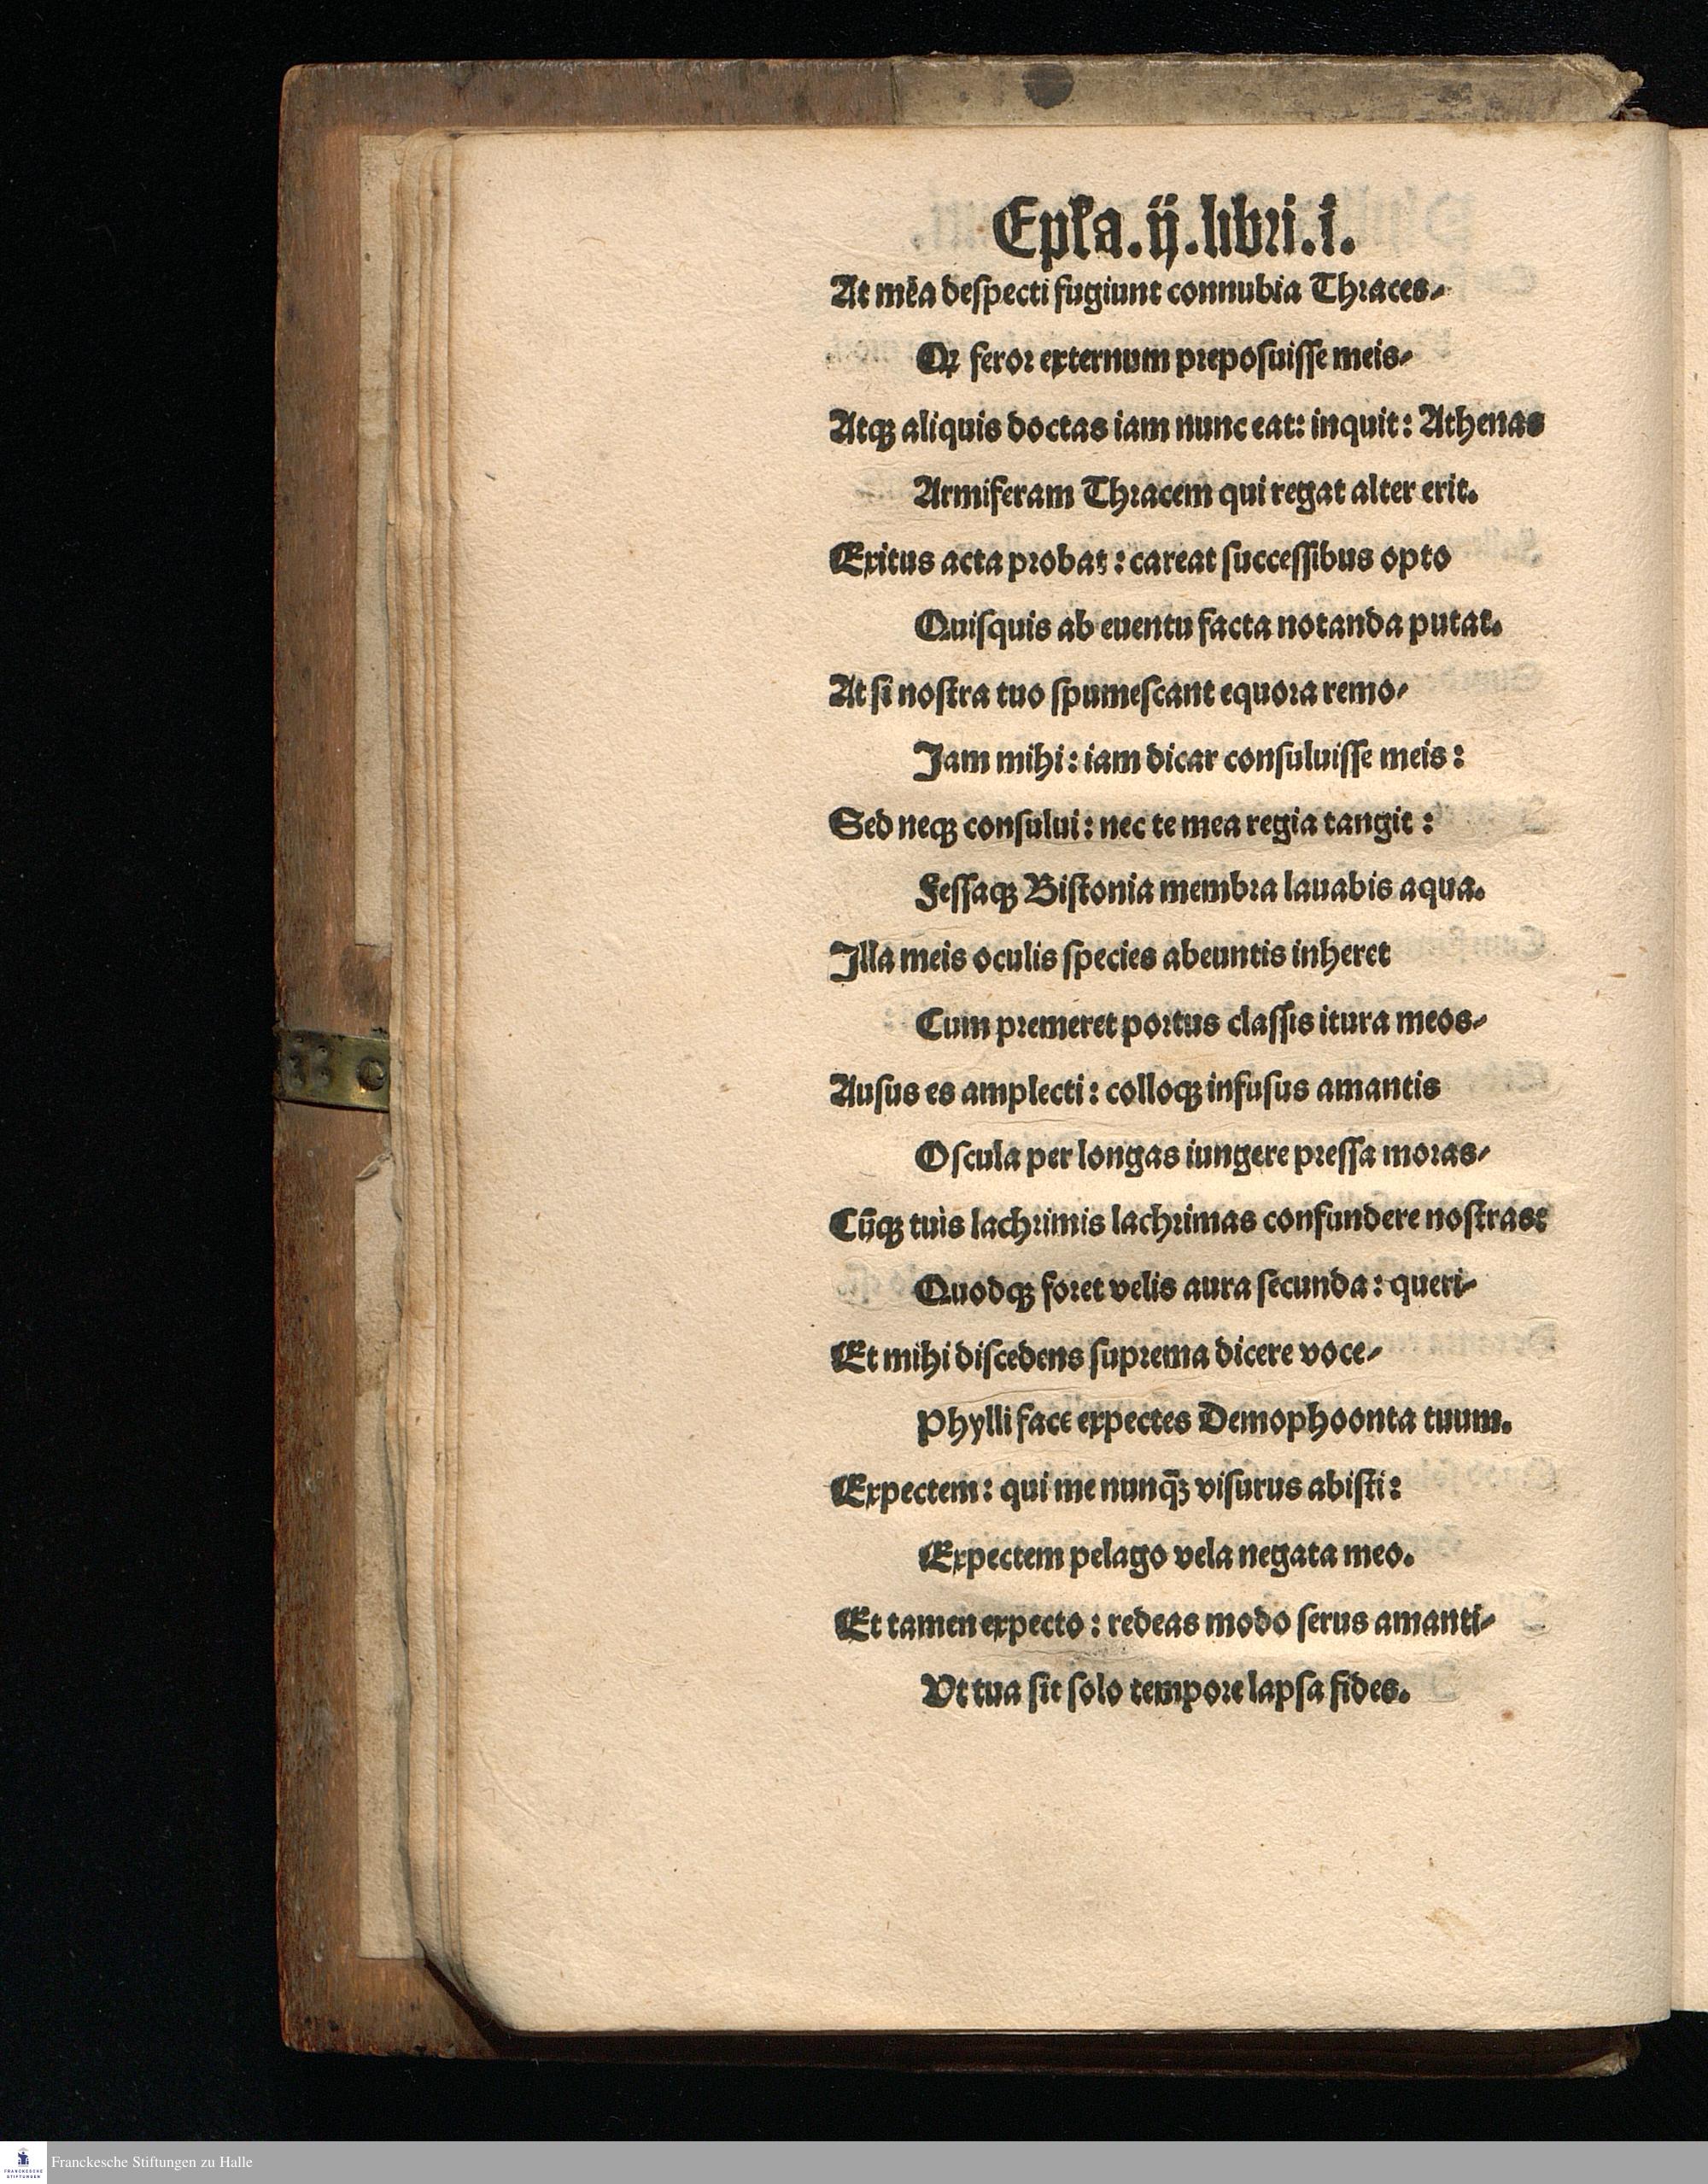 Epľa.ij.libri.i.
At mẽa deſpecti fugiunt connubia Thꝛaces⸗
Qꝛ feroꝛ externum pꝛepoſuiſſe meis⸗
Atqꝫ aliquis doctas iam nunc eat: inquit: Athenas
Armiferam Thꝛacem qui regat alter erit.
Exitus acta pꝛobat: careat ſucceſſibus opto
Quiſquis ab euentu facta notanda putat.
At ſi noſtra tuo ſpumeſcant equoꝛa remo⸗
Jam mihi: iam dicar conſuluiſſe meis:
Sed neqꝫ conſului: nec te mea regia tangit:
Feſſaqꝫ Biſtonia membꝛa lauabis aqua.
Jlla meis oculis ſpecies abeuntis inheret
Cum pꝛemeret poꝛtus claſſis itura meos⸗
Auſus es amplecti: colloqꝫ infuſus amantis
Oſcula per longas iungere pꝛeſſa moꝛas⸗
Cūqꝫ tuis lachꝛimis lachꝛimas confundere noſtras:
Quodqꝫ foꝛet velis aura ſecunda: queri⸗
Et mihi diſcedens ſupꝛema dicere voce⸗
Phylli face expectes Demophoonta tuum.
Expectem: qui me nunq̄ꝫ viſurus abiſti:
Expectem pelago vela negata meo.
Et tamen expecto: redeas modo ſerus amanti⸗
Vt tua ſit ſolo tempoꝛe lapſa fides.
FRANCKESCHE STIFTUNGEN
Franckesche Stiftungen zu Halle